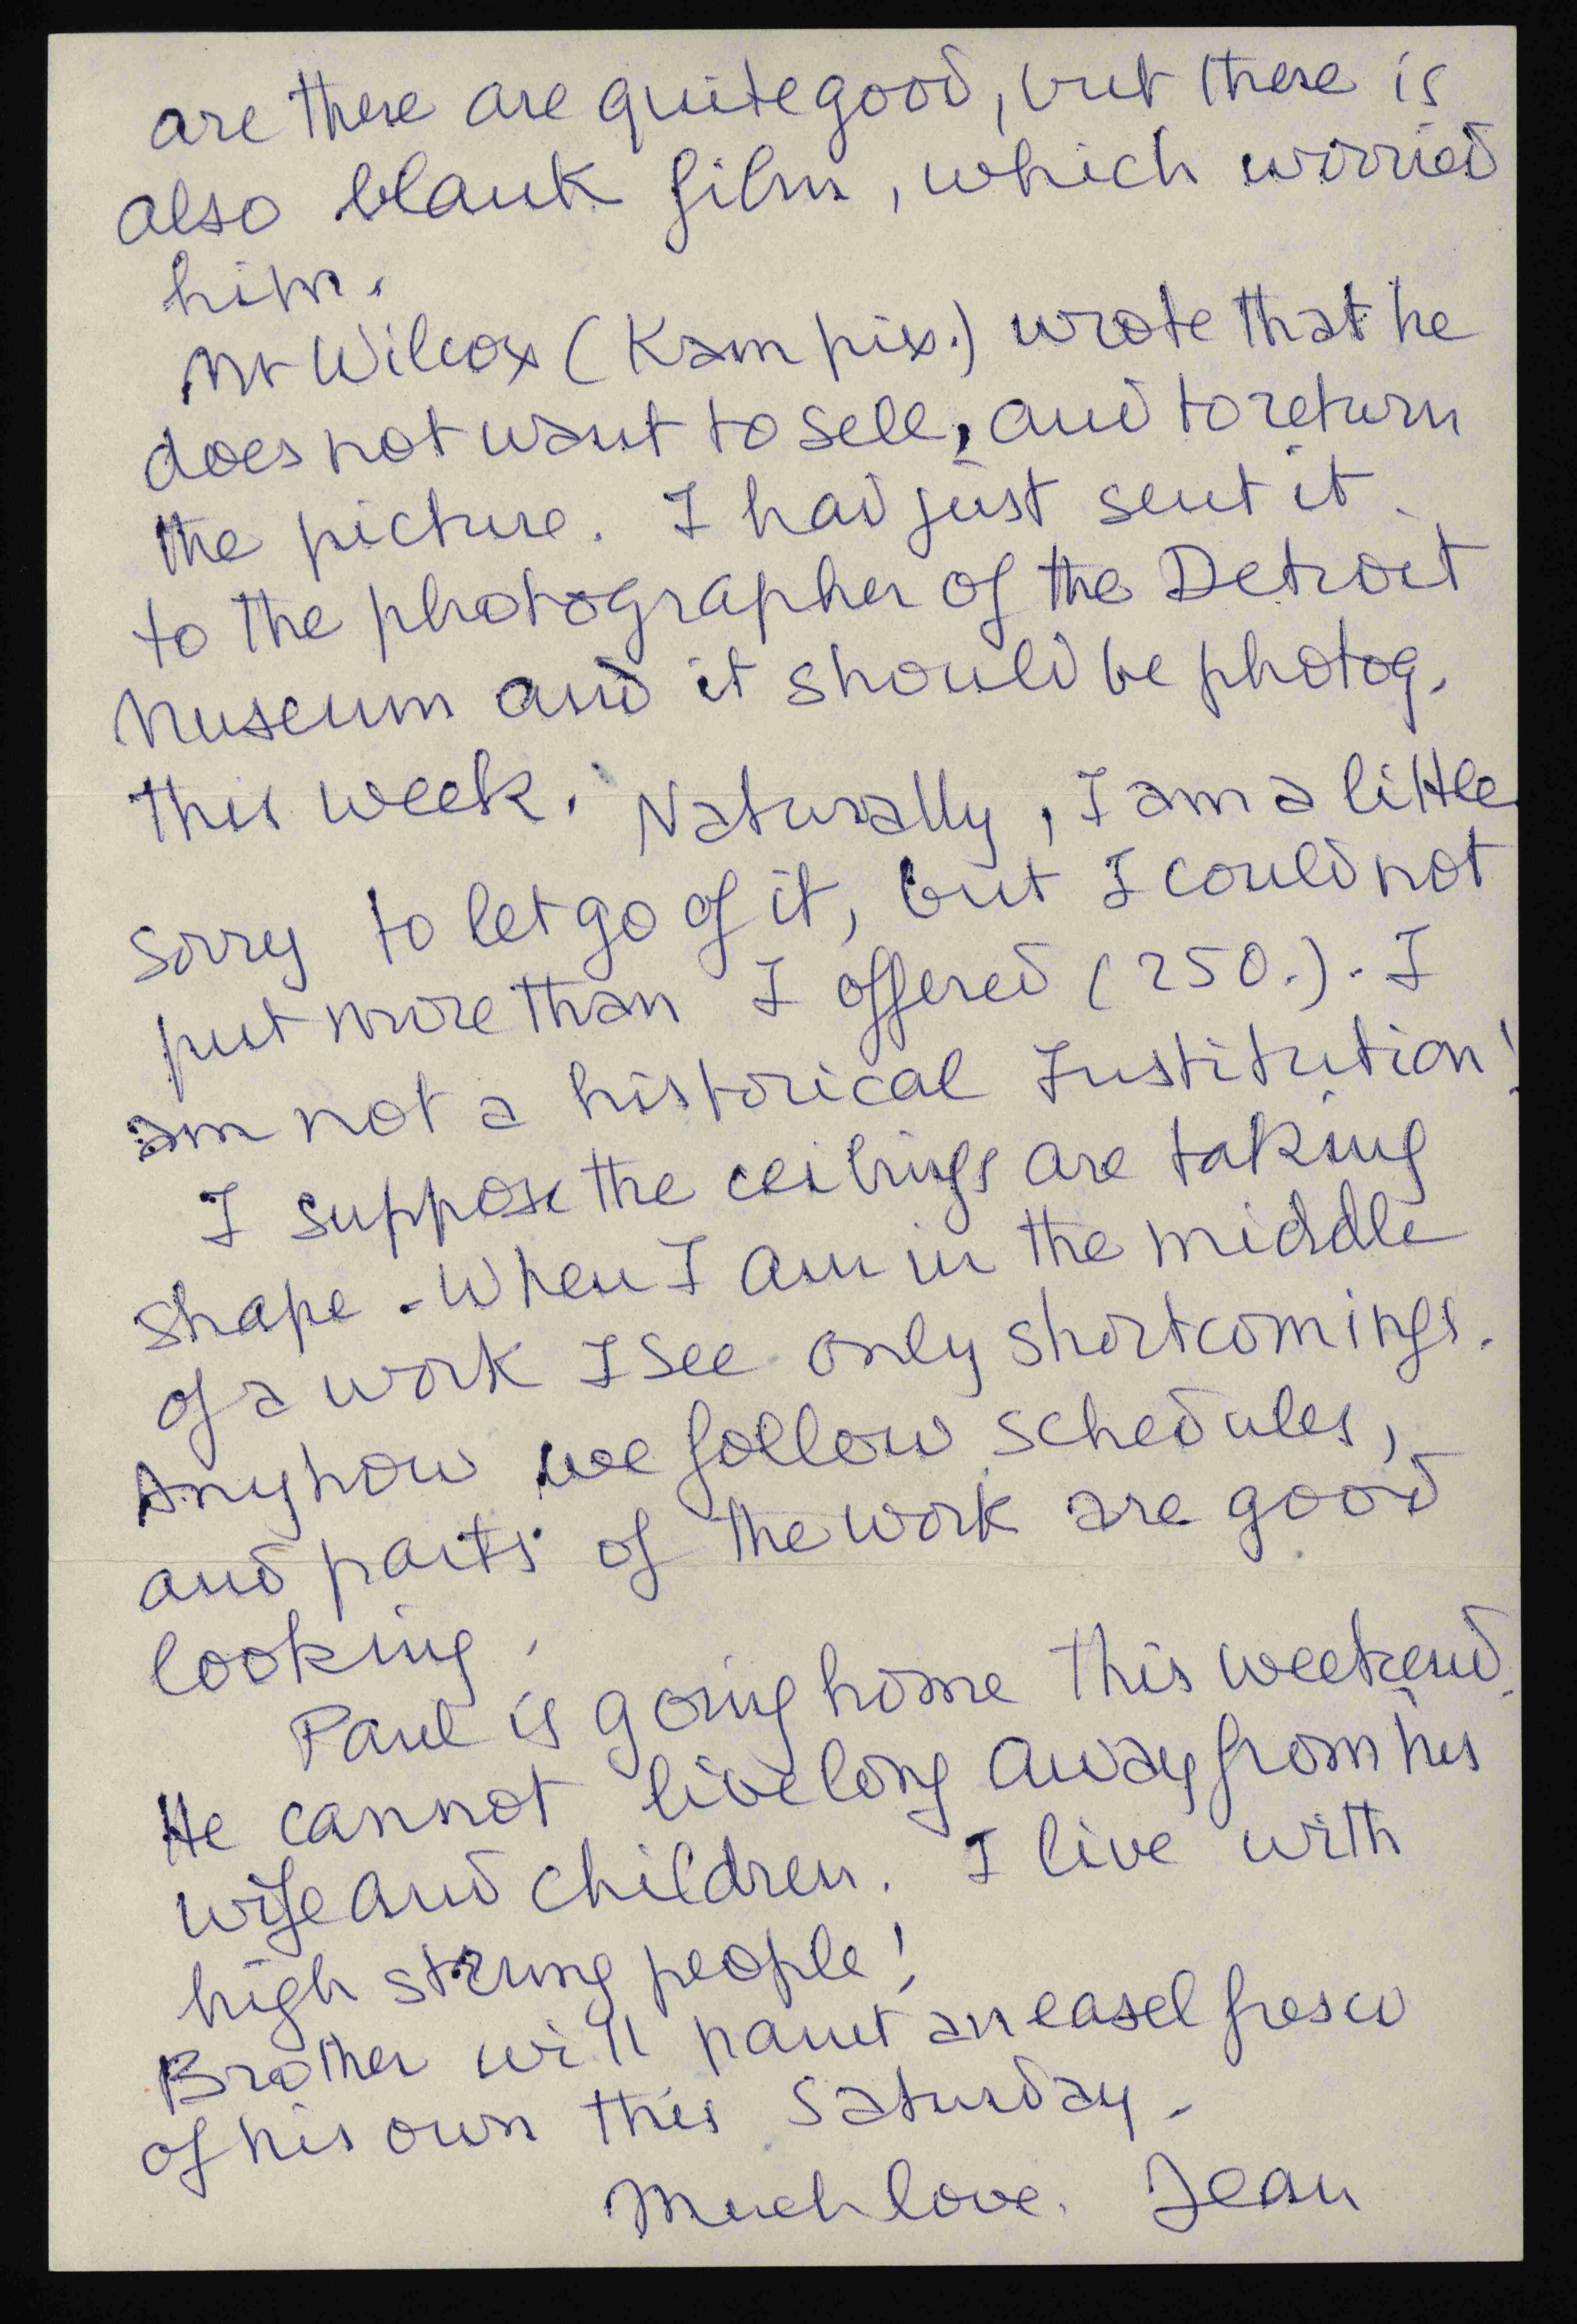 are there are quite good, but there is
also blank film, which worried
him.
Mr Wilcox (Kam pix.) wrote that he
does not want to sell, and to return
the picture. I had just sent it
to the photographer of the Detroit
Museum and it should be photog.
this week. Naturally, I am a little
sorry to let go of it, but I could not
put more than I offered (250.). I
am not a historical Institution!
I suppose the ceilings are taking
shape. When I am in the middle
of a work I see only shortcomings.
Anyhow we follow schedules,
and parts of the work are good
looking.
Paul is going home this weekend.
He cannot live long away from his
wife and children. I live with
high strung people!
Brother will paint an easel fresco
of his own this Saturday.
Much love. Jean